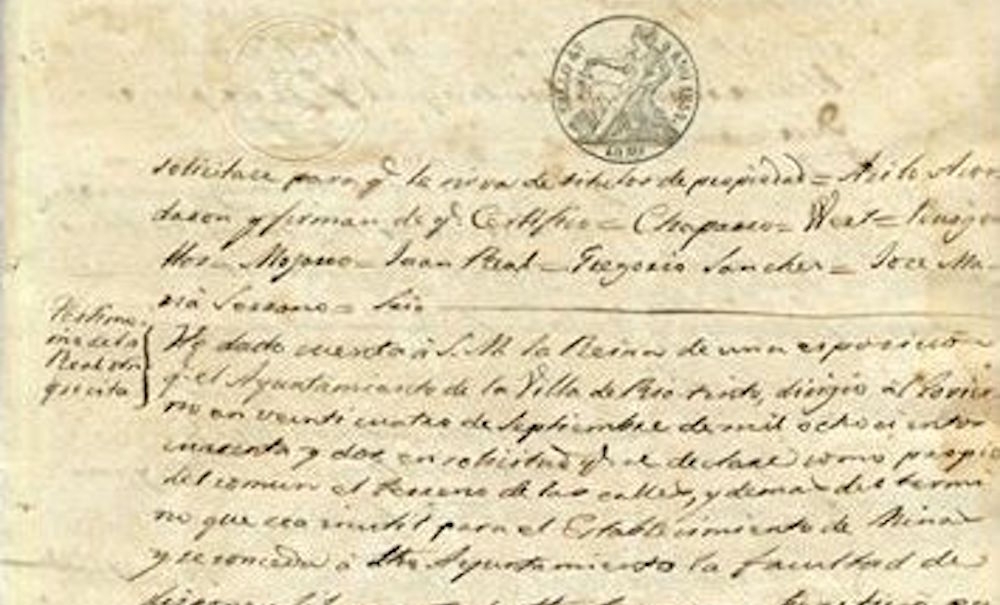 solicitase para q.e le sirva de titulos de propiedad = Asi lo Acor
daron y firman de q.e Certifico = Chaparro =
Mojarro = Juan Real = Gregorio Sanchez = Jose Ma
ria Serrano = Srio
Testimo
nio de la
Real orn
q.e se cita
He dado cuenta á S. M. la Reina de una esposicion
q.e el Ayuntamiento de la Villa de Rio tinto, dirigio al Govier
no en veinti cuatro de Septiembre de mil ochocientos
cuarenta y dos en solicitud q.e se declare como propio
del comun el terreno de las calles, y demas del termi
no que sea inutil para el Establecimiento de Minas
y se conceda á dho Ayuntamiento la facultad de